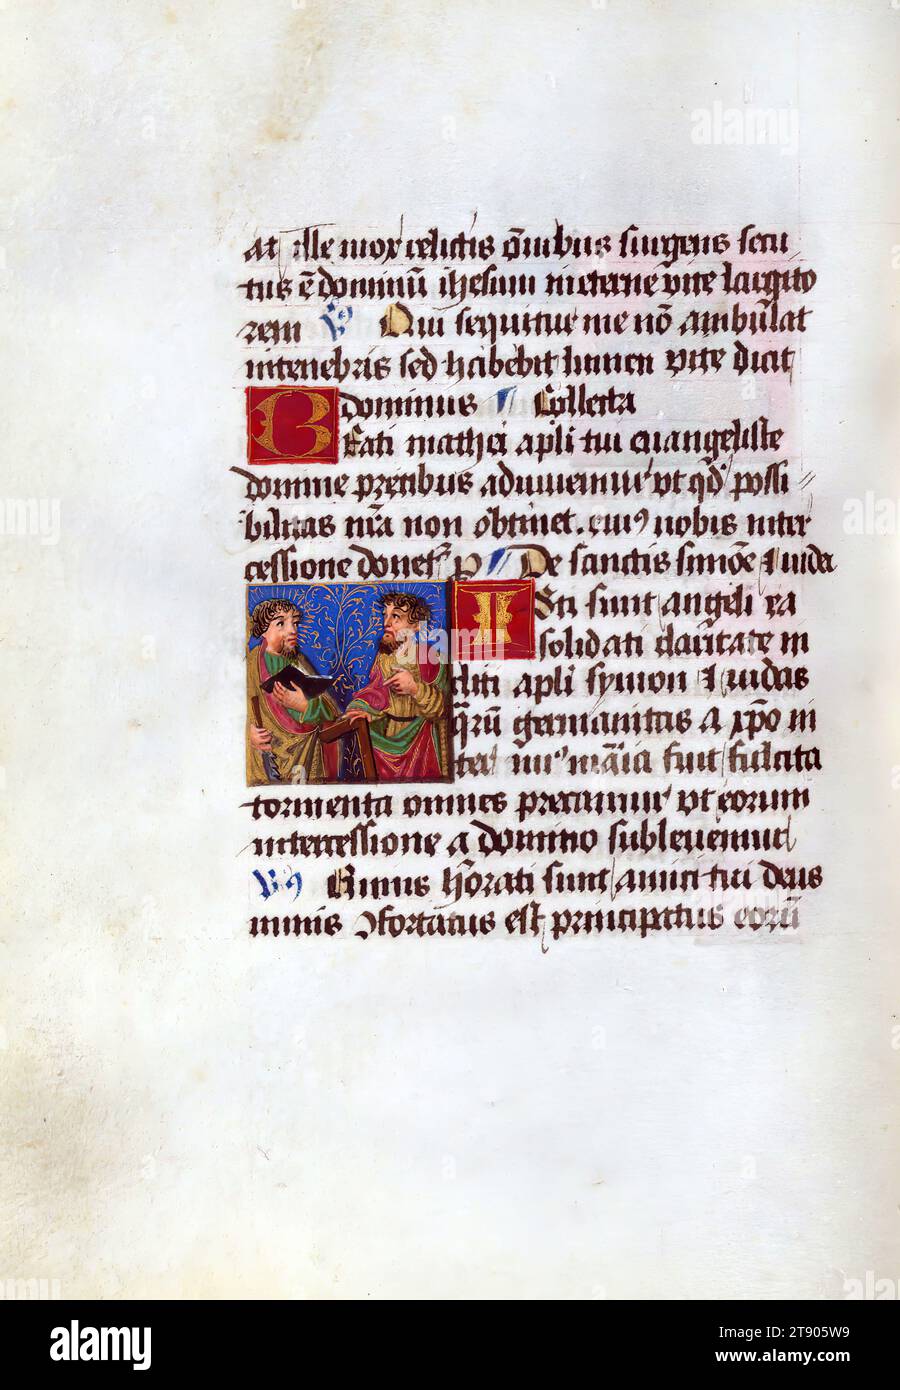 at ille mox relictis o͞mibus surgens secu
tus e͞ dominu͞ ihesum in eterne vite largito
rem V⁹ Qui sequitur me no͞ ambulat
in tenebris sed habebit lumen vite dicit
dominus Collecta
Beati mathei apl̄i tui euangeliste
domine precibus adiuuemur ut qd̄ possi
bilitas nr̄a non obtinet. cui⁹ nobis inter
cessione donet͛ p De sanctis simōe & iuda
Isti sunt angeli ea
solidati claritate in
cliti apl̄i symon & iudas
q̄rū germanitas a xp̄o in
ter mar̄ia fuit fulcita
tormenta omnes precamur ut eorum
intercessione a domino subleuemur
V⁹ Nimis h̄orati sunt amici tui deus
nimis ꝯfortatus est principatus eorū
alamy
Image ID: 2T905W9
www.alamy.com